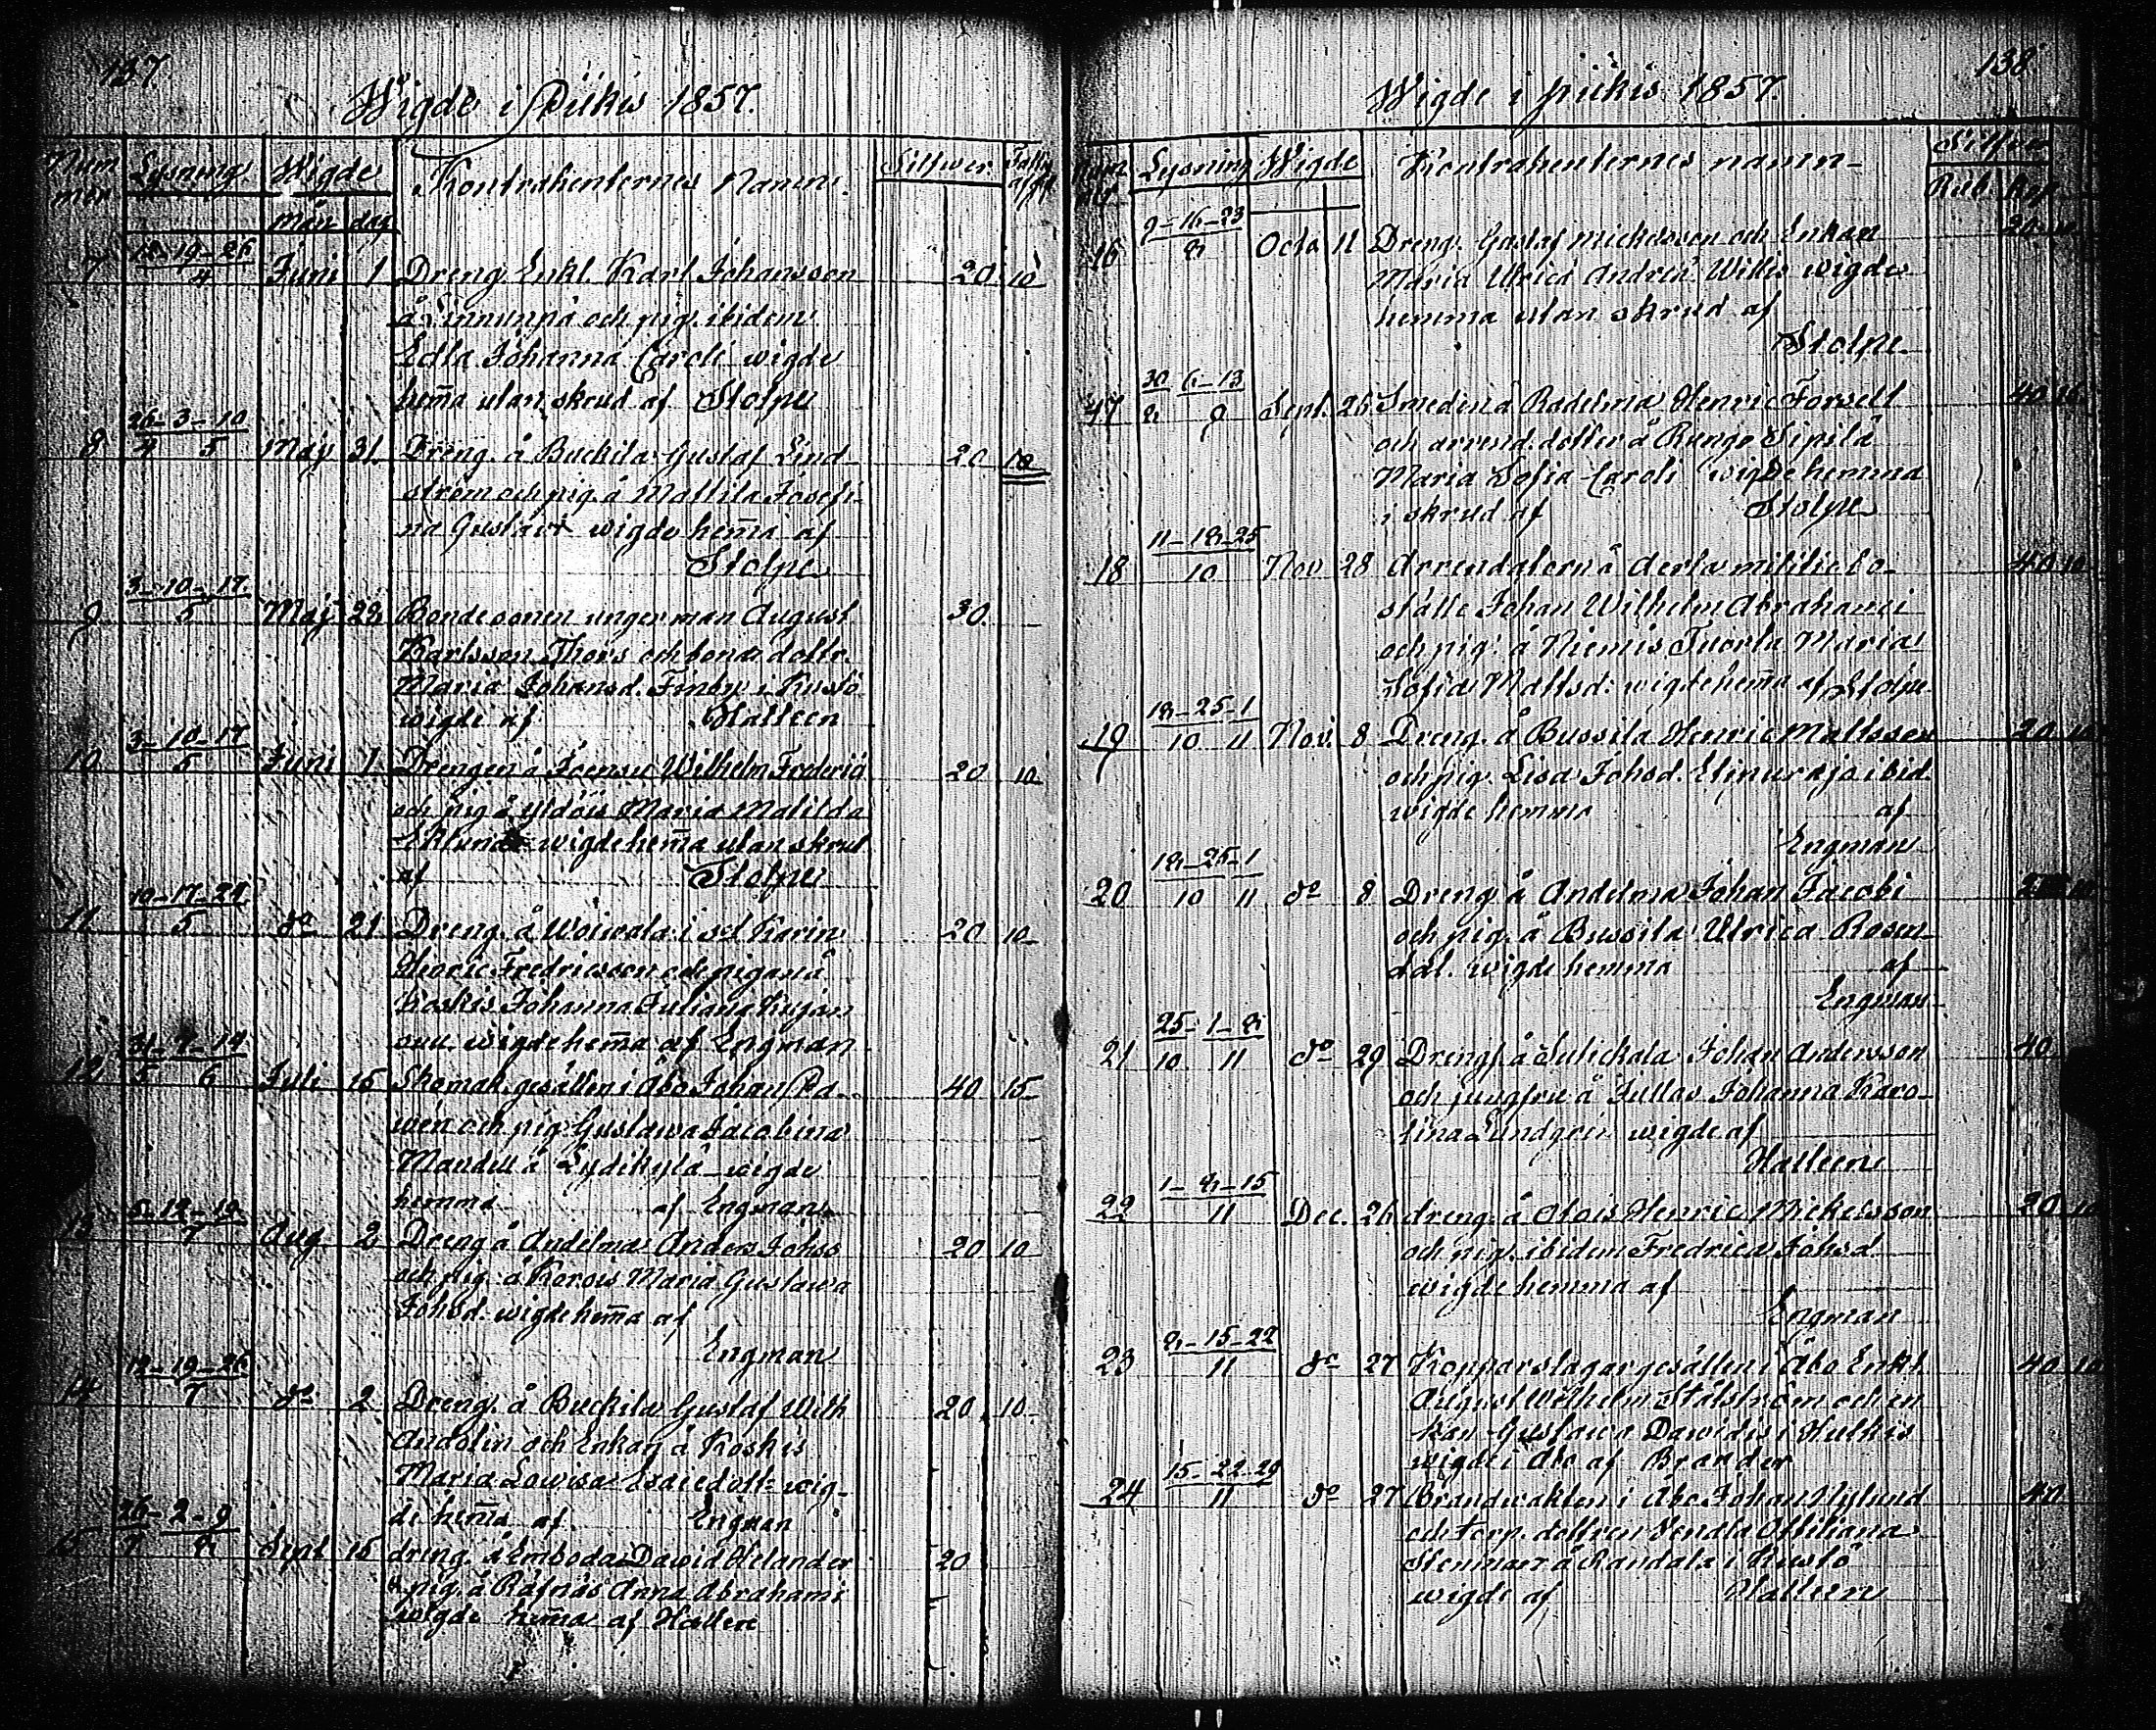 137.
Wigde i Piikis 1857.
Num mer Lysning Wigde Kontrahenternes Namn. Silfwer
mån dag
7 12-19-26/4 Juni 1 Dreng. Enkl. Karl Johansson 20 10
å och pig. ibidem
Edla Johanna Caroli wigde
hem̄a utan skrud af Stolpe
8 26-3-10/4 5 Maj 31. Dreng. å Buckila Gustaf Lind- 20 10
ström och pig. å Mattila Josefi-
na Gustavi wigde hem̄a af
Stolpe
9 3-10-17/5 Maj 23 Bondesonen ungerman August 30.
Karlsson Thors och bonde dottr.
Maria Johansd. Finby i Kustö
wigde af Halleen
10 3-10-17/5 Juni 1. Drengen å Wilhelm Frederici 20 10
och pig å Yldöis Maria Matilda
Eklund wigde hem̄a utan skrud
af Stolpe
11 10-17-24/5 do 21 Dreng. å i sct Karin 20 10
Henric Fredricsson och pigan å
Koskis Johanna Juliana
wigde hem̄a af Engman
12 31-7-14/5 6 Juli 15 Skomak. gesällen i Åbo Johan 40 15
och pig. Gustawa Jacobina
Mandell å Lydikylä wigde
hemma af Engman
13 5-12-19/7 Aug 2 Dreng å Andelma Anders Johss 20 10
och pig. å Karois Maria Gustawa
Johsd. wigde hem̄a af
Engman
14 12-19-26/7 do 2 Dreng. å Buckila Gustaf Wilh 20 10
Andolin och Enkan å Koskis
Maria Lowisa Esaiedottr wig-
de hem̄a af Engman
15 26-2-9/7 8 Sept 15 dreng. å Emboda Dawid Helander 20
pig. å Räfnäs Anna Abrahams
wigde hem̄a af Halleen
138
Wigde i piikis 1857.
Num mer Lysning Wigde Kontrahenternes namn- Silfver
Rub. Kop
16 9-16-23/8 Octo 11 Dreng. Gustaf Mickelsson och Enkan 20 10
Maria Ulrica Andreæ Willis wigde
hemma utan skrud af
Stolpe
17 30 6-13/8 9 Sept. 26 Smeden å Radelma Henric Forsell 40
och arrend. dotter å Runge Sipilä
Maria Sofia Caroli wigde hemma
i skrud af Stolpe
18 11-18-25/10 Nov 28 Arrendatorn å Aerla militiebo- 40 10
ställe Johan Wilhelm Abrahami
och pig. å Niemis Tuorla Maria
Sofia Mattsd: wigde hem̄a af Stolpe
19 18-25-1/10 11 Nov. 8 Dreng. å Bussila Henric Mattsson 20 10
och pig. Lisa Johsd. ibid.
wigde hemma af
Engman
20 18-25-1/10 11 do 8 Dreng å Andelma Johan Jacobi
och pig. å Bussila Ulrica Rosen-
dal. wigde hemma af
Engman
21 25-1-8/10 11 do 29 Drengf. å Johan Andersson 40
och jungfru å Jullas Johanna Karo-
lina Lundgrén wigde af
Halleen
22 1-8-15/11 Dec. 26 dreng. å Henric Mickelsson 20 10
och pig. ibidem Fredrica Johsd.
wigde hemma af
Engman
23 8-15-22/11 do 27 Kopparslagargesällen i Åbo Enkl. 40 10
August Wilhelm Stålström och en-
kan Gustawa Dawidis i Hulkis
wigde i Åbo af Brander
24 15-22-29/11 do 27 Brandwakten i Åbo Johan Nylund 40
och torp. dottren Wendla Ottiliana
å Randala i Kustö
wigde af Halleen